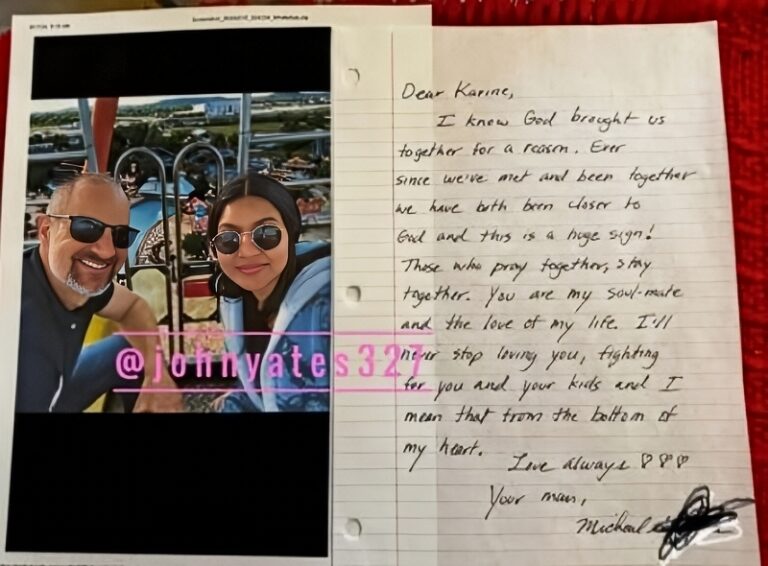 @johnyates327
Dear Karine,
I know God brought us
together for a reason. Ever
since we've met and been together
we have both been closer to
God and this is a huge sign!
Those who pray together, stay
together. You are my soul-mate
and the love of my life. I'll
never stop loving you, fighting
for you and your kids and I
mean that from the bottom of
my heart.
Love always ♡♡♡
Your man,
Micheal